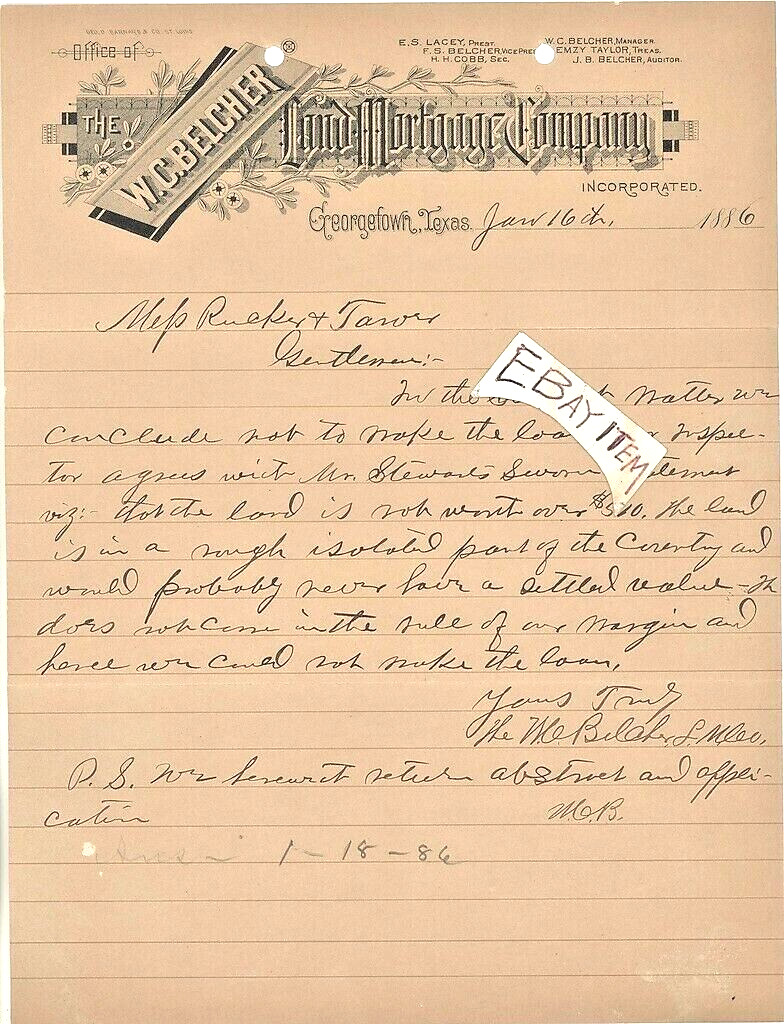 GEO. D. BARNARD & CO. ST. LOUIS
Office of
E. S. LACEY, PREST.
F. S. BELCHER, VICE PRES
H. H. COBB, SEC.
W. C. BELCHER, MANAGER.
EMZY TAYLOR, TREAS.
J. B. BELCHER, AUDITOR.
THE W. C. BELCHER Land Mortgage Company
INCORPORATED.
Georgetown, Texas. Jan 16th, 1886
Mess Rucker & Tarver
Gentlemen:-
In the matter we
conclude not to make the loa Inspec-
tor agrees with Mr. Stewarts Sworn tement
viz:- that the land is not worth over $510. The land
is in a rough isolated part of the Country and
would probably never have a settled value - It
does not come in the rule of our margin and
hence we could not make the loan.
Yours Truly
The W.C. Belcher L. M. Co.
P. S. We herewith return abstract and appli-
cation W.C.B.
1 - 18 - 86
EBAY ITEM